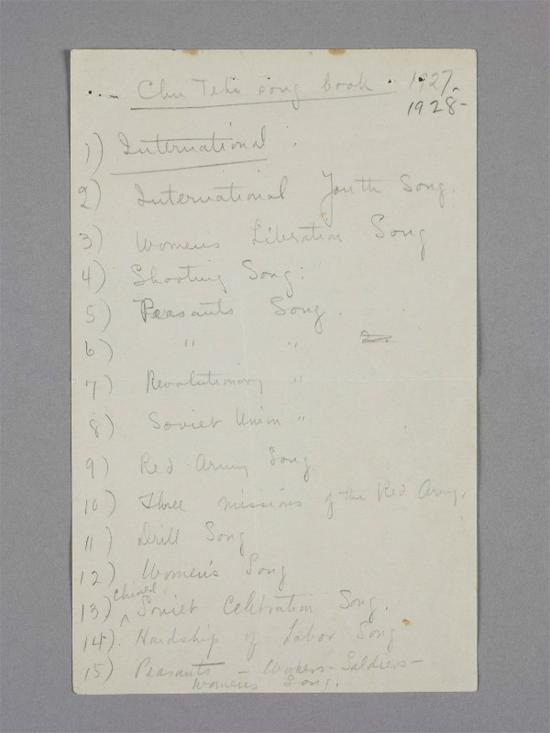 Chu Teh's song book. 1927,
1928-
1) International.
2) International Youth Song.
3) Women's Liberation Song
4) Shooting Song:
5) Peasants Song.
6) " "
7) Revolutionary "
8) Soviet Union "
9) Red Army Song
10) Three missions of the Red Army.
11) Drill Song
12) Women's Song
13) Chinese Soviet Celebration Song.
14). Hardship of Labor Song
15) Peasants - Workers - Soldiers -
Women's Song.